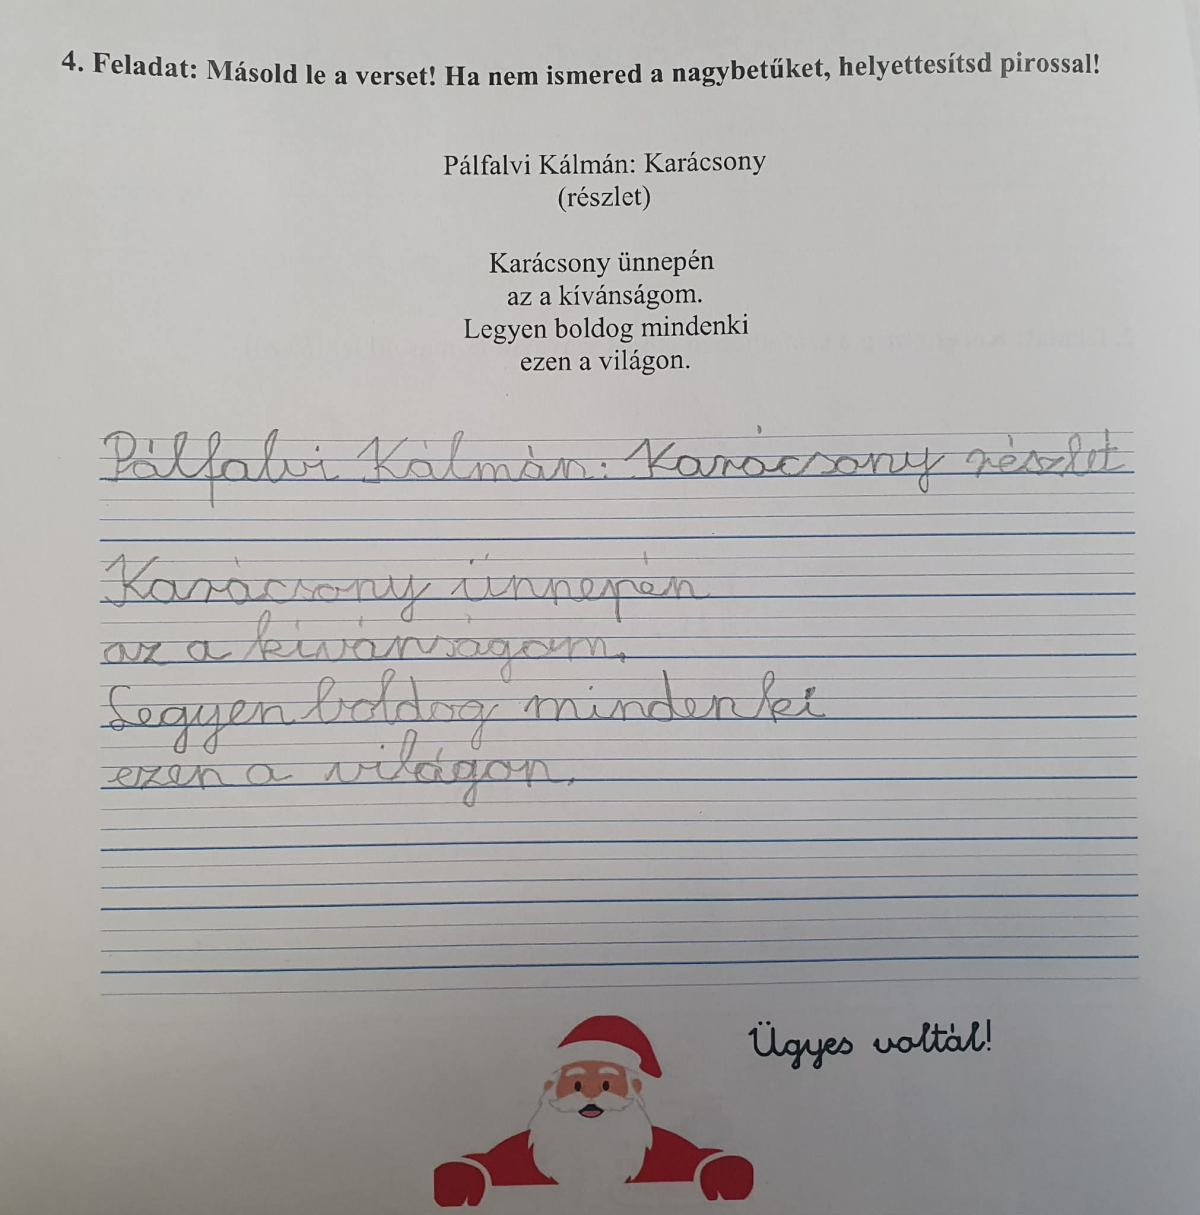 4. Feladat: Másold le a verset! Ha nem ismered a nagybetűket, helyettesítsd pirossal!
Pálfalvi Kálmán: Karácsony
(részlet)
Karácsony ünnepén
az a kívánságom.
Legyen boldog mindenki
ezen a világon.
Pálfalvi Kálmán: Karácsony részlet
Karácsony ünnepén
az a kívánságom.
Legyen boldog mindenki
ezen a világon.
Ügyes voltál!